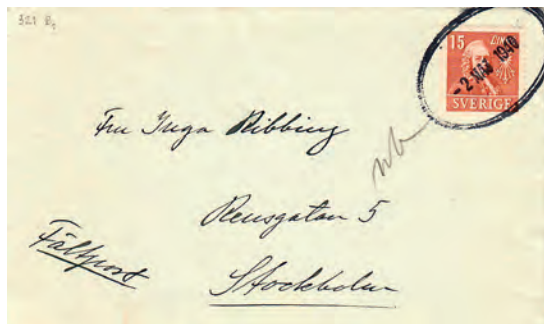 321
15 LIN
- 2 MAJ 1940
SVERIGE
Fru Inga Ribbing
Rensgatan 5
Fältpost
Stockholm